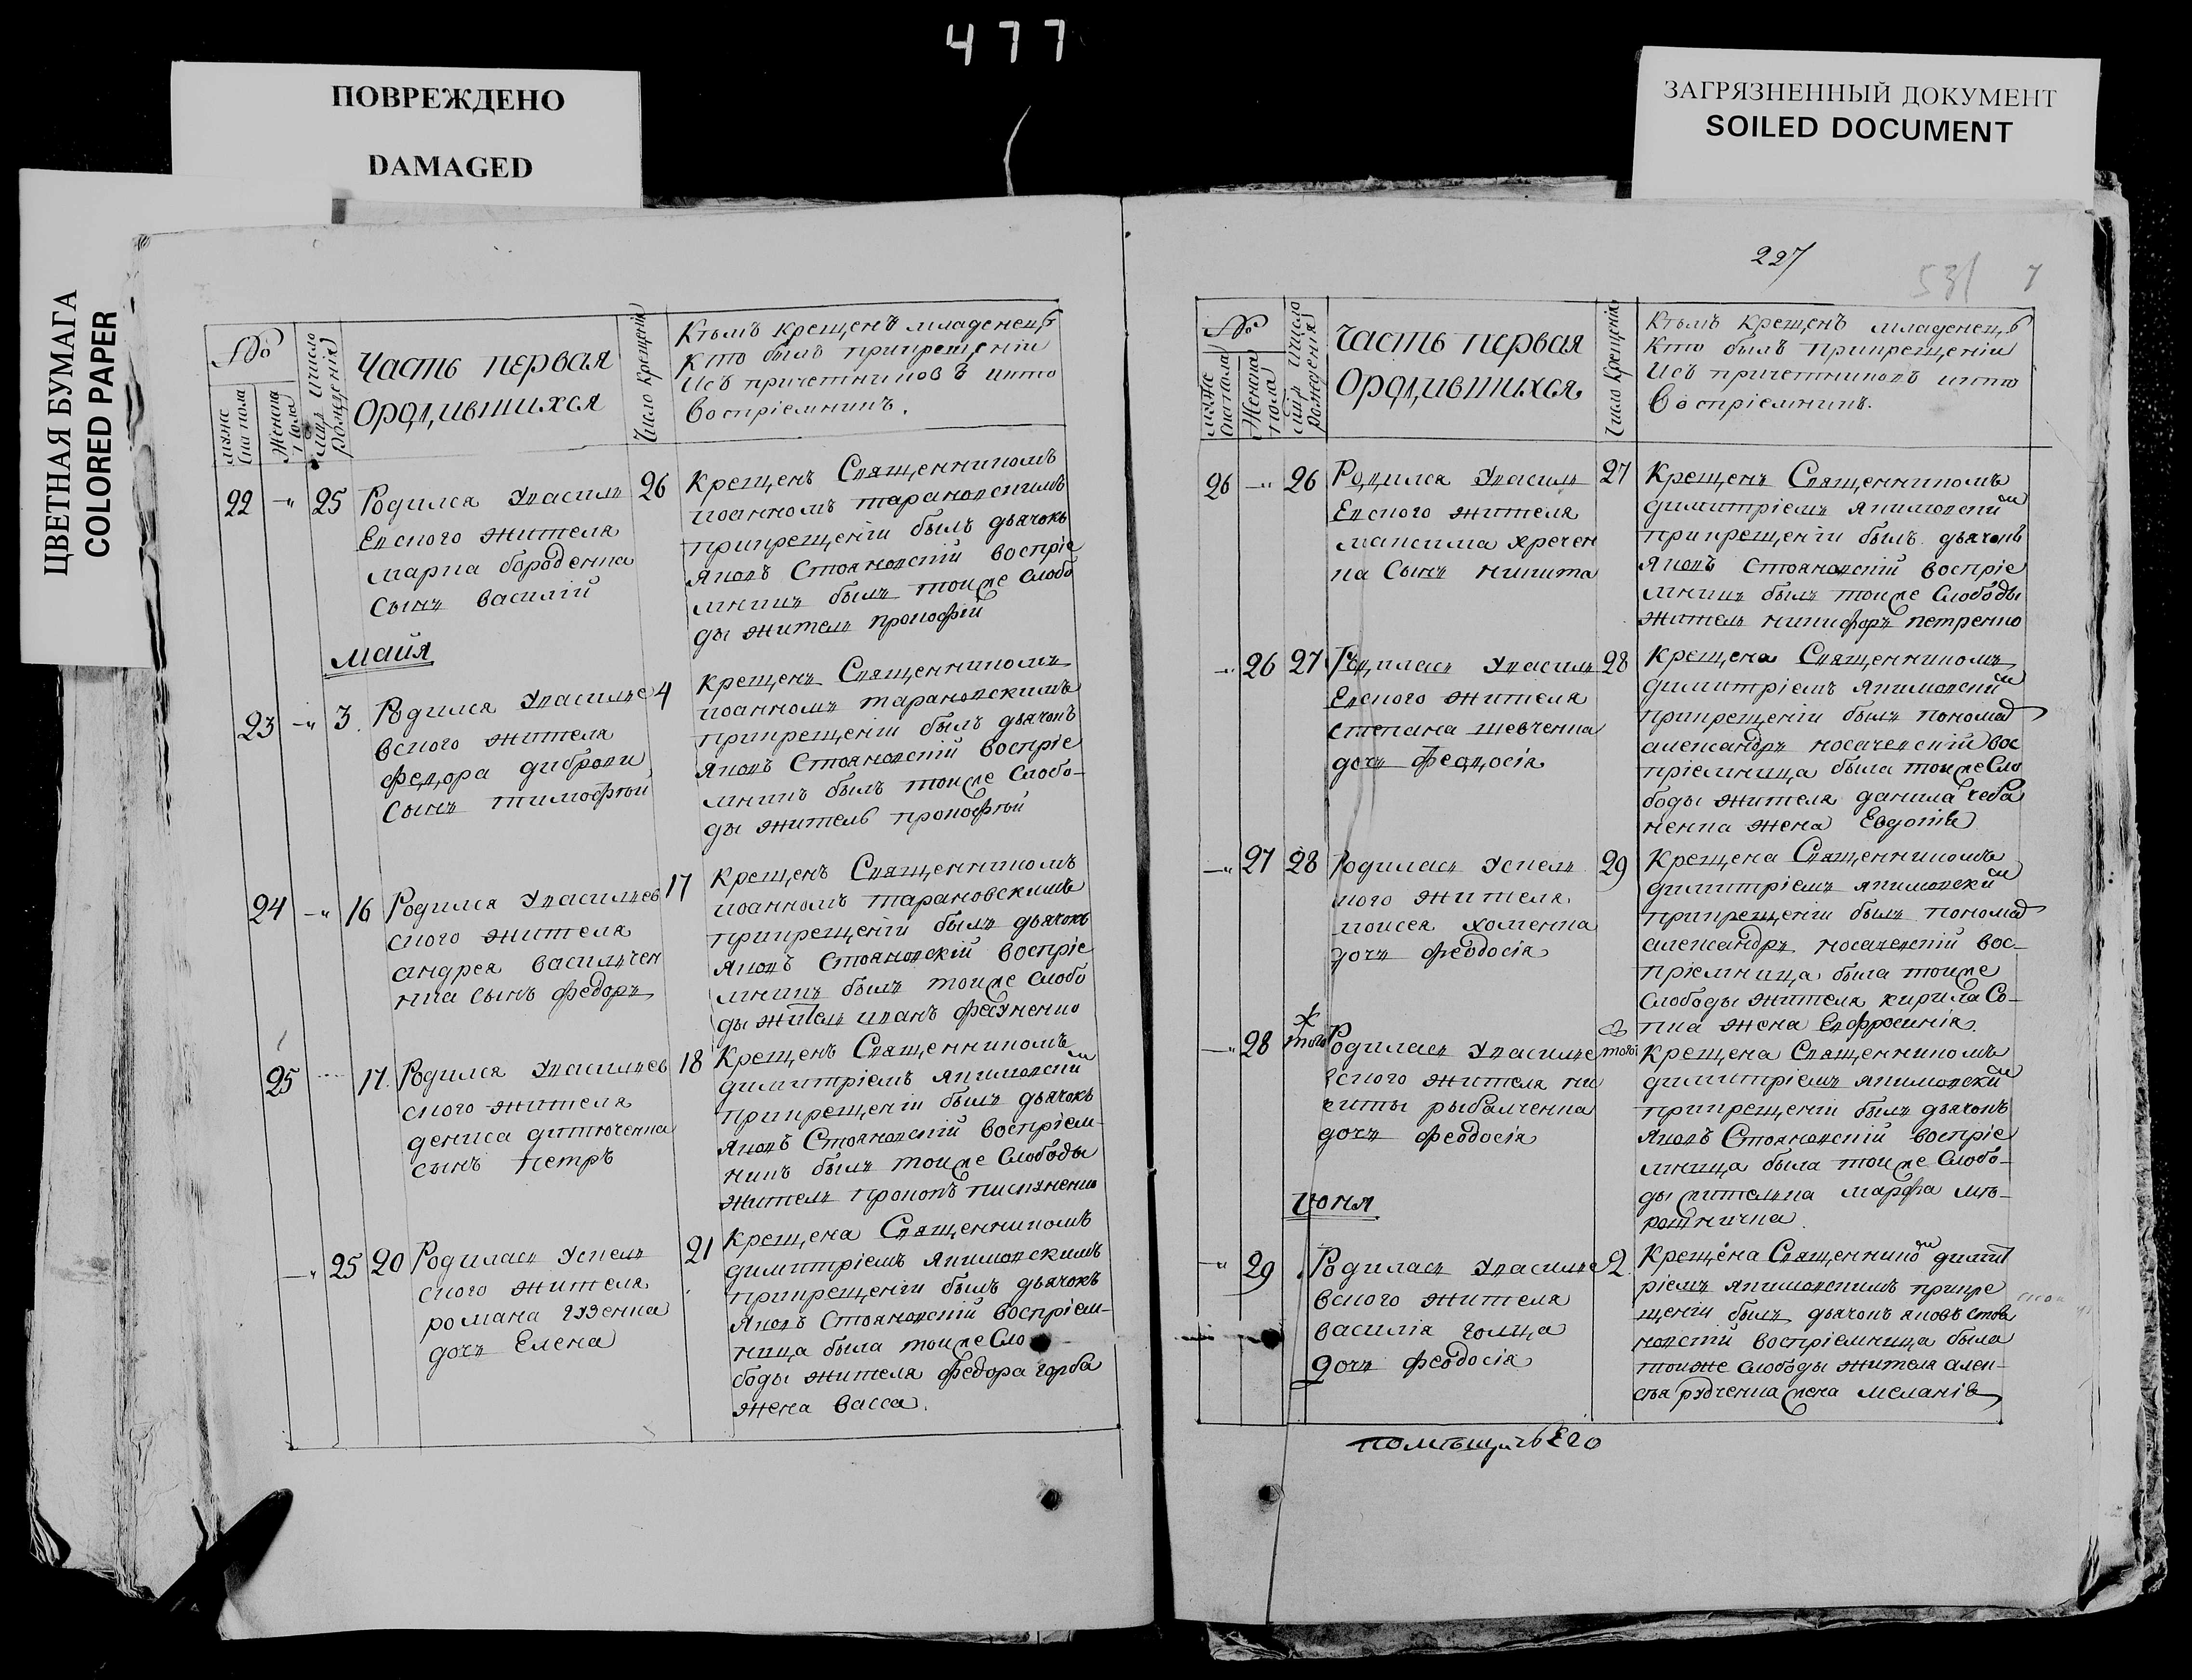 477
ПОВРЕЖДЕНО
DAMAGED
ЗАГРЯЗНЕННЫЙ ДОКУМЕНТ
SOILED DOCUMENT
ЦВЕТНАЯ БУМАГА
COLORED PAPER
№
мужеска пола
Женска пола
Число рожденія
Часть первая
О родившихся
Число крещенія
Кѣмъ крещенъ младенецъ
Кто былъ прикрещеніи
Исъ причетниковъ икто
Воспріемникъ.
22 —" 25
Родился Увасилье
вского жителя
марка бороденка
Сынъ василій
26
Крещенъ Священникомъ
иоанномъ тарановскимъ
прикрещеніи былъ дьячокъ
яковъ Стояновскій воспріе
мникъ былъ тоижe Слобо
ды житель прокофій
майя
23 —" 3.
Родился Увасилье
вского жителя
федора диброви
Сынъ тимофѣй
4
Крещенъ Священникомъ
иоанномъ тарановскимъ
прикрещеніи былъ дьячокъ
яковъ Стояновскій воспріе
мникъ былъ тоиже Слобо-
ды житель прокофѣй
24 —" 16
Родился Увасильев
ского жителя
андрея васильчен
нка сынъ федоръ
17
Крещенъ Священникомъ
иоанномъ тарановскимъ
прикрещеніи былъ дьячокъ
яковъ Стояновскій воспріе
мникъ былъ тоиже Слобо
ды житель иванъ
25 17.
Родился Увасильев
ского жителя
дениса дитюченка
сынъ петръ
18
Крещенъ Священникомъ
димитріемъ якимовским
прикрещеніи былъ дьячокъ
яковъ Стояновскій воспріем-
никъ былъ тоиже Слободы
житель прокопъ
—" 25 20
Родилась Успель
ского жителя
романа гузенка
дочь Елена
21
Крещена Священникомъ
димитріемъ якимовскимъ
прикрещеніи былъ дьячокъ
яковъ Стояновскій воспріем-
ница была тоиже Сло
боды жителя федора горба
жена васса.
227
531 7
№
мужеска пола
Женска пола
Число рожденія
Часть первая
О родившихся
Число крещенія
Кѣмъ крещенъ младенецъ
Кто былъ прикрещеніи
Исъ причетниковъ икто
Воспріемникъ.
26 —" 26
Родился Увасилье
вского жителя
максима хречен
ка Сынъ никита
27
Крещенъ Священникомъ
димитріемъ якимовским
прикрещеніи былъ дьячокъ
яковъ Стояновскій воспріе
мникъ былъ тоиже Слободы
житель никифоръ петренко
—" 26 27
Родилась Увасилье
вского жителя
степана шевченка
дочь феодосія
28
Крещена Священникомъ
димитріемъ якимовским
прикрещеніи былъ пономар
александръ носачевскій вос
пріемница была тоиже Сло
боды жителя данила чеба
ненка жена Евдокія
—" 27 28
Родилась Успель
кого жителя
моисея хоменка
дочь феодосія
29
Крещена Священникомъ
димитріемъ якимовским
прикрещеніи былъ пономар
александръ носачевскій вос-
пріемница была тоиже
Слободы жителя кирила Со-
пка жена Евфросинія.
—" 28 тогож
Родилась Увасилье
вского жителя ни
киты рыбалченка
дочь феодосія
тогож
Крещена Священникомъ
димитріемъ якимовским
прикрещеніи былъ дьячокъ
яковъ Стояновскій воспріе
мница была тоиже Слобо-
ды жителька марфа мѣ-
рошничка.
июня
—" 29 .
Родилась Увасилье
вского жителя
василія голца
дочь феодосія
2.
Крещена Священником димит
ріемъ якимовскимъ прикре
щеніи былъ дьячокъ яковъ стоя
новскій воспріемница была
тоиже слободы жителя алек-
сѣя рудченка жена меланія